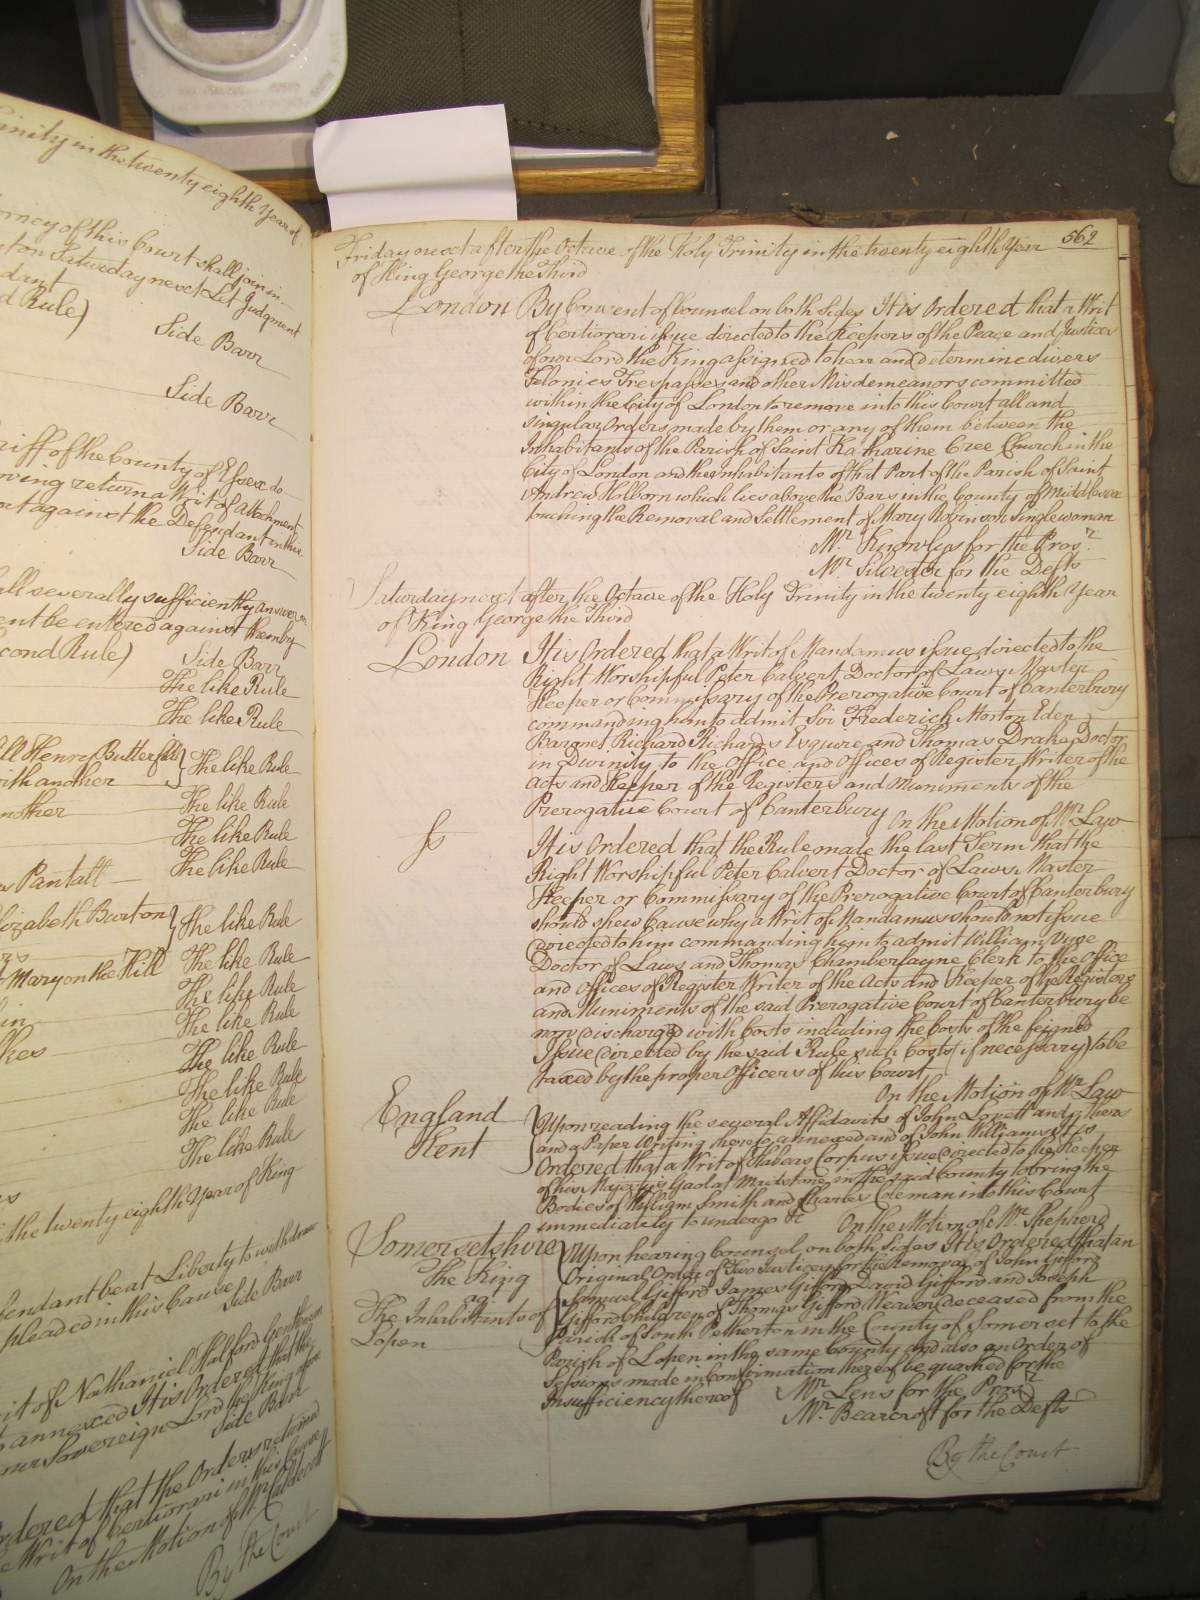 inity in the twenty eighth Year of
of this Court shall join in
on Saturday next Let Judgment
dant
d Rule)
Side Barr
Side Barr
riff of the County of Essex do
return a Writ of Attachment
against the Defendant in this
Side Barr
all severally sufficiently answer
ent be entered against them by
cond Rule)
Side Barr
The like Rule
The like Rule
ll Henry Butterfill
The like Rule
with another
nother
The like Rule
The like Rule
The like Rule
Pantall
lizabeth Burton
The like Rule
Mary on the Hill
The like Rule
The like Rule
The like Rule
The like Rule
The like Rule
The like Rule
The like Rule
the twenty eighth Year of King
fendant be at Liberty to withdraw
pleaded in this Cause
Side Barr
it of Nathaniel Halford Gentleman
annexed It is Ordered that the
our Sovereign Lord the King
Side Barr
rdered that the Orders returned
Writ of Certiorari in this
On the Motion of Mr. Caldecott
By the Court
562
Friday next after the Octave of the Holy Trinity in the twenty eighth Year
of King George the Third
London By Consent of Counsel on both sides It is Ordered that a Writ
of Certiorari issue directed to the Keepers of the Peace and Justices
of our Lord the King assigned to hear and determine divers
Felonies Trespasses and other Misdemeanors committed
within the City of London to remove into this Court all and
singular Orders made by them or any of them between the
Inhabitants of the Parish of Saint Katharine Cree Church in the
City of London and the Inhabitants of that Part of the Parish of Saint
Andrew Holborn which lies above the Bars in the County of Middlesex
touching the Removal and Settlement of Mary Robinson Singlewoman
Mr. Knowlys for the Prosr.
Mr. Silvester for the Defts
Saturday next after the Octave of the Holy Trinity in the twenty eighth Year
of King George the Third
London It is Ordered that a Writ of Mandamus issue directed to the
Right Worshipful Peter Calvert Doctor of Laws Master
Keeper or Commissary of the Prerogative Court of Canterbury
commanding him to admit Sir Frederich Morton Eden
Baronet Richard Richards Esquire and Thomas Drake Doctor
in Divinity to the Office and Offices of Register Writer of the
Acts and Keeper of the Registers and Muniments of the
Prerogative Court of Canterbury On the Motion of Mr. Law
It is Ordered that the Rule made the last Term that the
Right Worshipful Peter Calvert Doctor of Laws Master
Keeper or Commissary of the Prerogative Court of Canterbury
should shew Cause why a Writ of Mandamus should not issue
directed to him commanding him to admit William Vyse
Doctor of Laws and Thomas Chamberlayne Clerk to the Office
and Offices of Register Writer of the Acts and Keeper of the Registers
and Muniments of the said Prerogative Court of Canterbury be
now discharged with Costs including the Costs of the feigned
Issue directed by the said Rule such Costs (if necessary) to be
taxed by the proper Officers of this Court
On the Motion of Mr. Law
England
Kent
Upon reading the several Affidavits of John Lovett and others
and a Paper Writing thereto annexed and of John Williams It is
Ordered that a Writ of Habeas Corpus issue directed to the Keeper
of his Majestys Gaol at Maidstone in the said County to bring the
Bodies of William Smith and Charles Coleman into this Court
immediately to undergo &c On the Motion of Mr. Shepherd
Somersetshire
The King
agt
The Inhabitants of
Lopen
Upon hearing Counsel on both sides It is Ordered that an
Original Order of Two Justices for the Removal of John Gifford
Samuel Gifford James Gifford David Gifford and Joseph
Gifford Children of Thomas Gifford Weaver deceased from the
Parish of South Petherton in the County of Somerset to the
Parish of Lopen in the same County and also an Order of
Sessions made in Confirmation thereof be quashed for the
Insufficiency thereof Mr. Lens for the Prosr.
Mr. Bearcroft for the Defts
By the Court